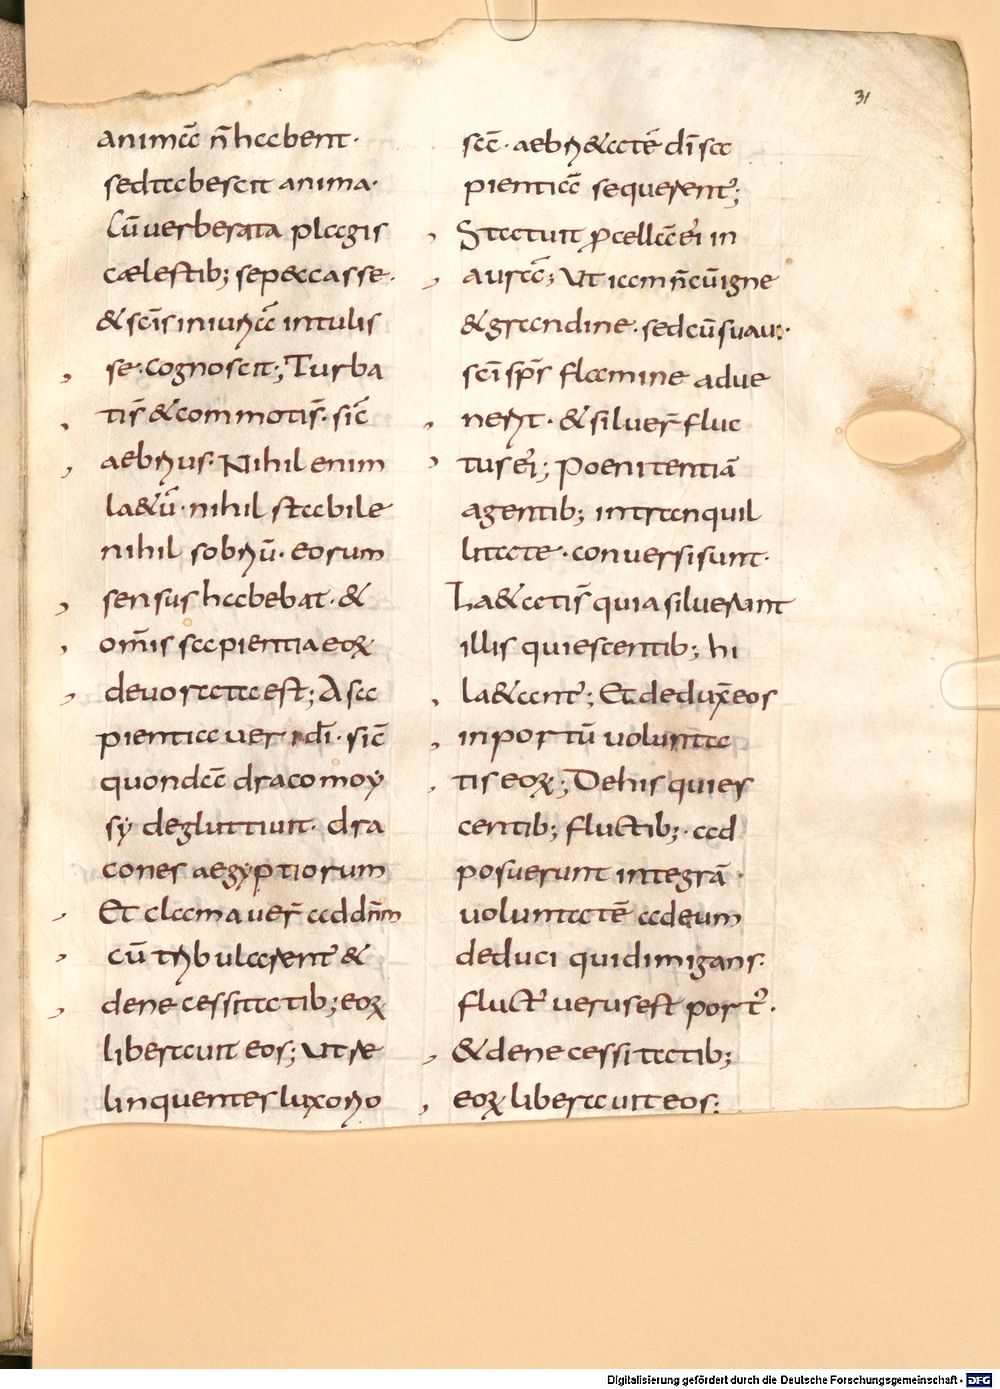 31
animā n̄ habent·
sed tabescit anima·
Cū uerberata plagis
cælestib; sepe& casse·
& scīs iniuriā intulis
se· cognoscit; Turba
tis̄ & commotis̄· sic̄
aebrius· Nihil enim
la&ū· nihil stabile
nihil sobriū· eorum
sensus habebat· &
om̄is sapientia eoꝝ
deuorata est; A sa
pientia uer dī· sic̄
quondā draco moy
sy degluttiuit· dra
cones aegyptiorum
Et clamauer̄ ad dn̄m
cū tribularent̄ &
de necessitatib; eoꝝ
liberauit eos; Ut re
linquentes luxorio
sā· aebri&atē dī sa
pientiā sequerent̄;
Statuit ꝓcellā ei in
aurā; Ut iam n̄ cū igne
& grandine· sed cū suaui·
scī sps̄ flamine adue
nerit· & siluer̄ fluc
tus ei; Poenitentiā
agentib; in tranquil
litate· conuersi sunt·
La&atis̄ quia siluerunt
illis quiescentib; hi
la&ant̄; Et deduxit eos
in portū uolunta
tis eoꝝ; De his quies
centib; fluctib;· ad
posuerunt integrā·
uoluntatē ad eum
deduci qui dimigans·
fluct̄ uerus est port̄·
& de necessitatib;
eoꝝ liberauit eos:
Digitalisierung gefördert durch die Deutsche Forschungsgemeinschaft - DFG